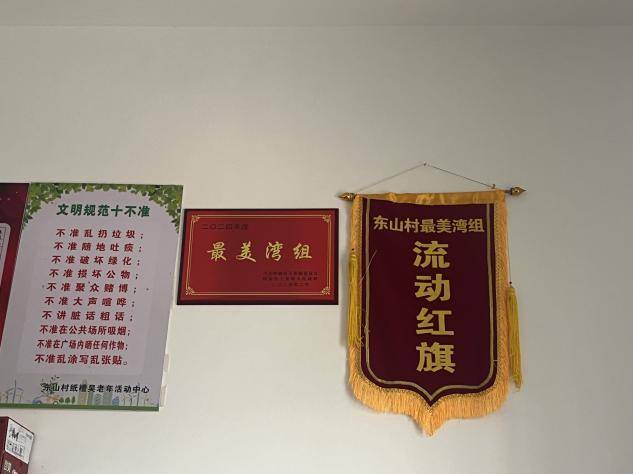 文明规范十不准
不准乱扔垃圾；
不准随地吐痰；
不准破坏绿化；
不准损坏公物；
不准聚众赌博；
不准大声喧哗；
不讲脏话粗话；
不准在公共场所吸烟；
不准在广场内晒任何作物；
不准乱涂写乱张贴。
东山村纸槽吴老年活动中心
二〇二四年度
最美湾组
东山村最美湾组
流动红旗